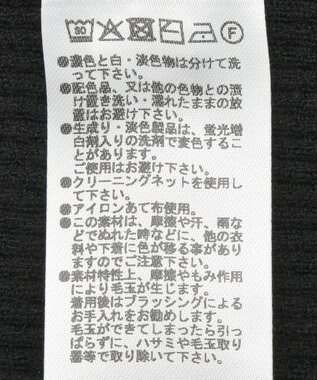 30 F
●濃色と白・淡色物は分けて洗
って下さい。
●配色品、又は他の色物との漬
け置き洗い・濡れたままの放
置はお避け下さい。
●生成り・淡色製品は、蛍光増
白剤入りの洗剤で変色するこ
とがあります。
ご使用はお避け下さい。
●クリーニングネットを使用し
て下さい。
●アイロンあて布使用。
●この素材は、摩擦や汗、雨な
どでぬれた時などに、他の衣
料や下着に色が移る事があり
ますのでご注意下さい。
●素材特性上、摩擦やもみ作用
により毛玉が生じます。
着用後はブラッシングによる
お手入れをお勧めします。
毛玉ができてしまったら引っ
ぱらずに、ハサミや毛玉取り
器等で取り除いて下さい。